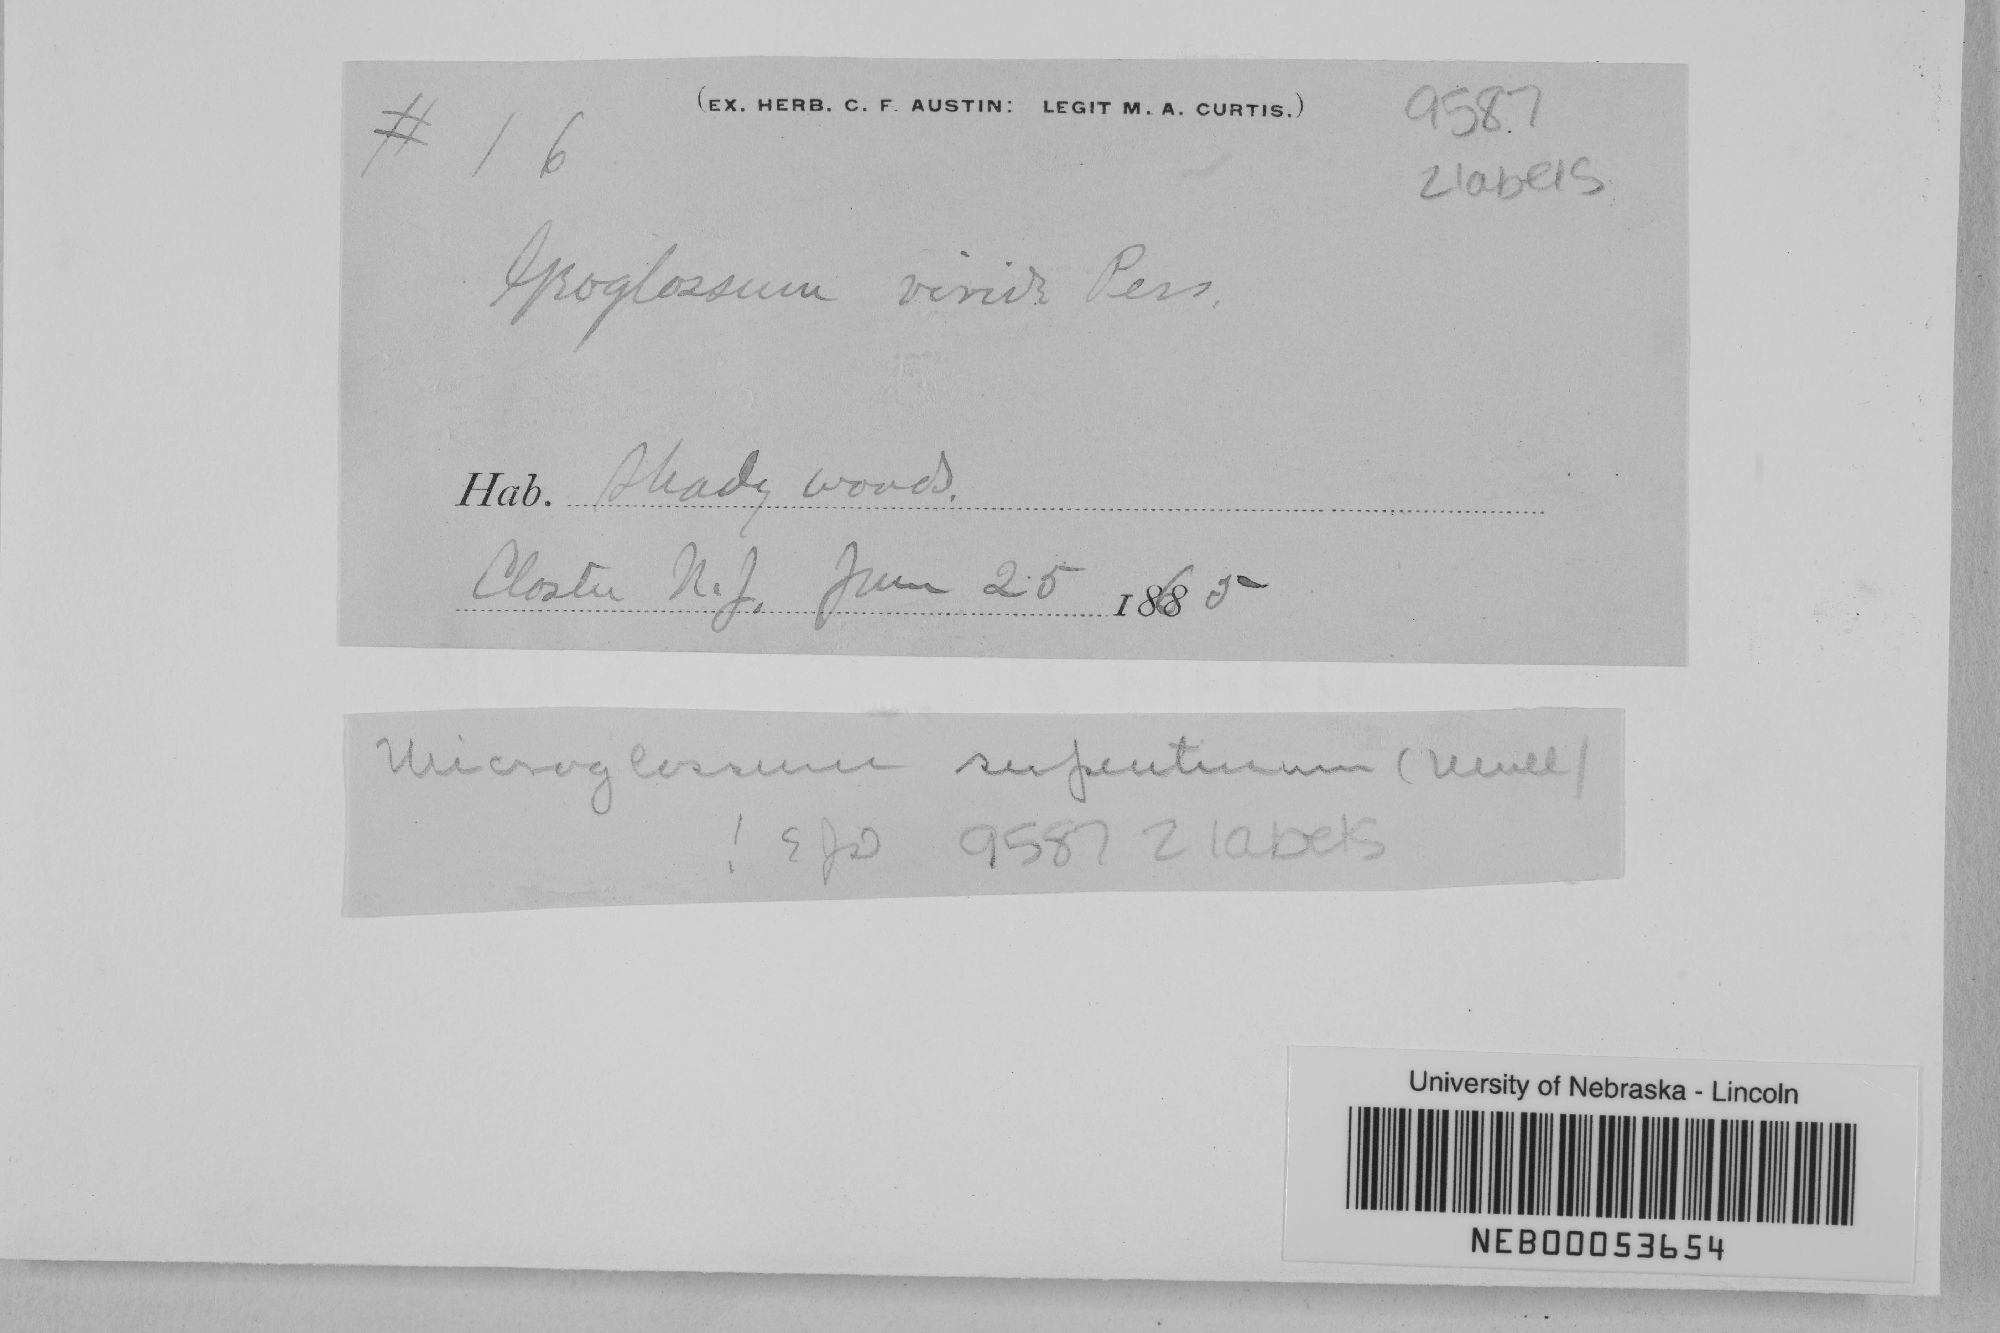 (EX. HERB. C. F. AUSTIN: LEGIT M. A. CURTIS.)
# 16
9587
2 labels
Geoglossum viride Pers.
Hab. Shady woods.
Closter N.J. June 25 1865
Microglossum (Muell)
! EJD 9587 2 labels
University of Nebraska - Lincoln
NEB00053654